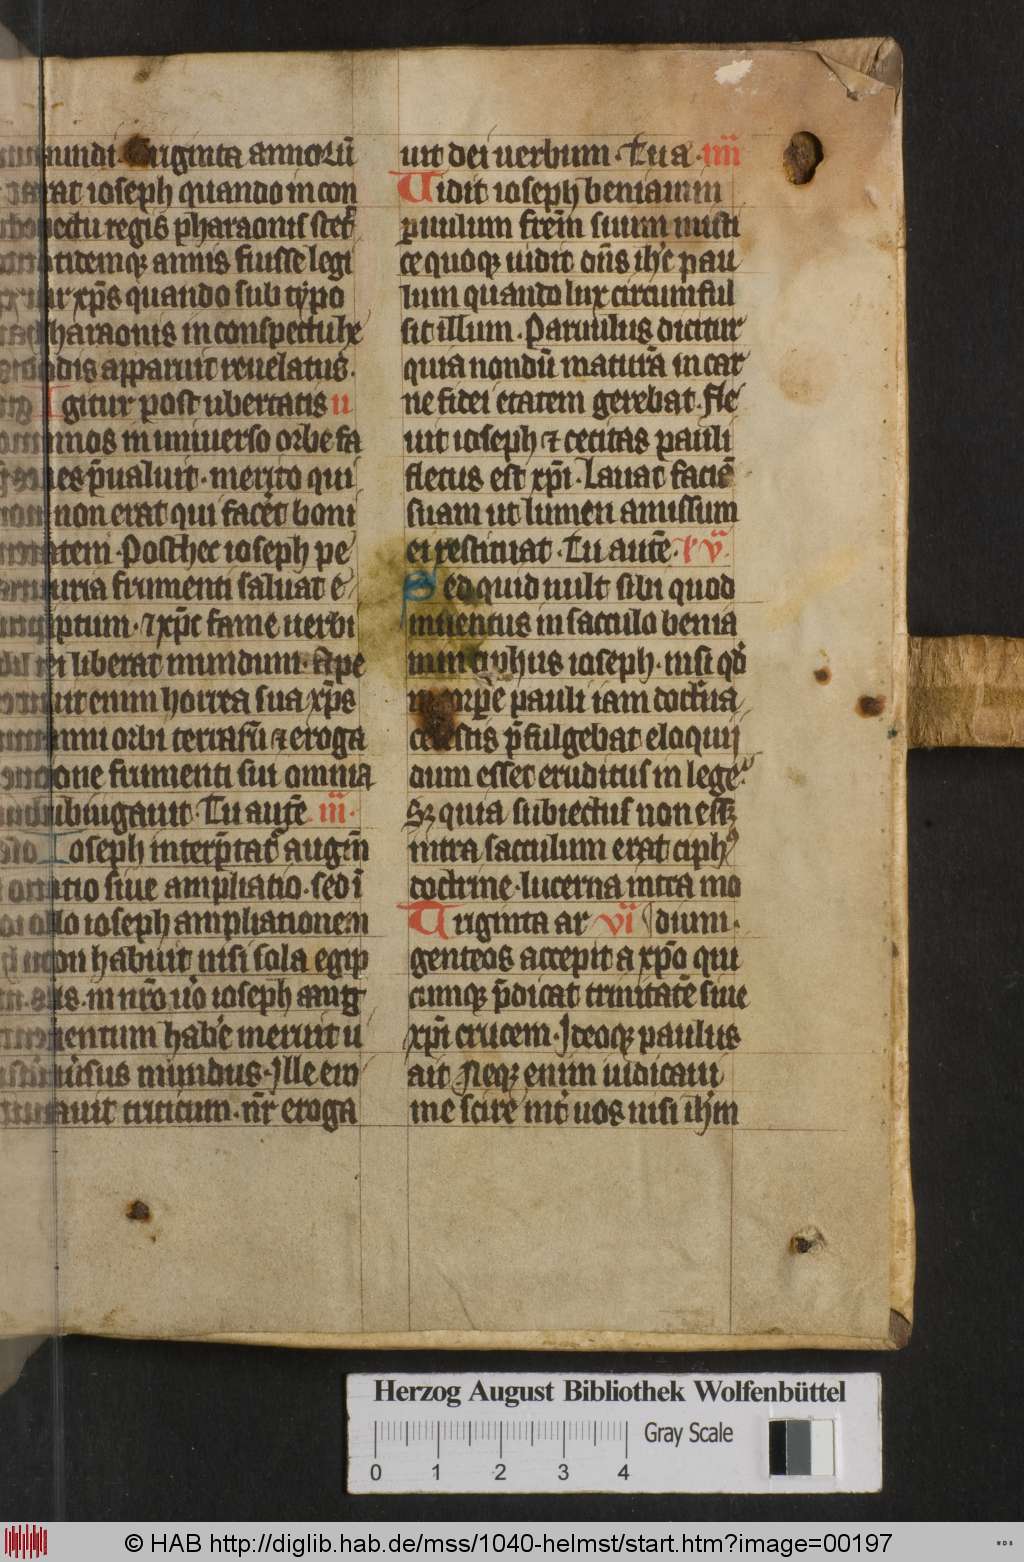 mundi. Triginta annorū
erat ioseph quando in con
spectu regis pharaonis stet͛
totidemq; annis fuisse legi
tur xp̄s quando sub typo
pharaonis in conspectu he
rodis apparuit reuelatus.
Igitur post ubertatis u
annos in uniuerso orbe fa
mes p̄ualuit. merito qui
non erat qui facēt boni
tatem. Posthec ioseph pe
nuria frumenti saluat e
giptum. ⁊ xp̄c fame uerbi
dei liberat mundum. Ape
ruit enim horrea sua xp̄s
omni orbi terrarū ⁊ eroga
tione frumenti sui omnia
subiugauit. Tu autē. iii.
Ioseph interp̄tat᷒ augm̄
tatio siue ampliatio. sed ī
illo ioseph ampliationem
non habuit nisi sola egip
tus. in nr̄o ū̊o ioseph aug
mentum habe meruit u
niūsus mundus. Ille ero
gauit triticum. nr̄ eroga
uit dei uerbum. Tu a. iiii
Uidit ioseph beniamin
paruulum frēm suum misti
ce quoq; uidit dn̄s ih̄c pau
lum quando lux circumful
sit illum. Paruulus dicitur
quia nondū maturā in car
ne fidei etatem gerebat. fle
uit ioseph ⁊ cecitas pauli
fletus est xp̄i. Lauat faciē
suam ut lumen amissum
ei restituat. Tu autē. v.
Sed quid uult sibi quod
inuentus in sacculo benia
min ciphus ioseph. nisi qd̊
in corpe pauli iam doctrīa
celestis p̄fulgebat eloquij
dum esset eruditus in lege.
Sz quia subiectus non essz
intra sacculum erat ciph᷒
doctrine. lucerna intra mo
dium. vi Triginta ar
genteos accepit a xp̄o qui
cumq; p̄dicat trinitatē siue
xp̄i crucem. Ideoq; paulus
ait Neq; enim iudicaui
me scire int̉ uos nisi ih̄m
Herzog August Bibliothek Wolfenbüttel
Gray Scale
0 1 2 3 4
© HAB http://diglib.hab.de/mss/1040-helmst/start.htm?image=00197